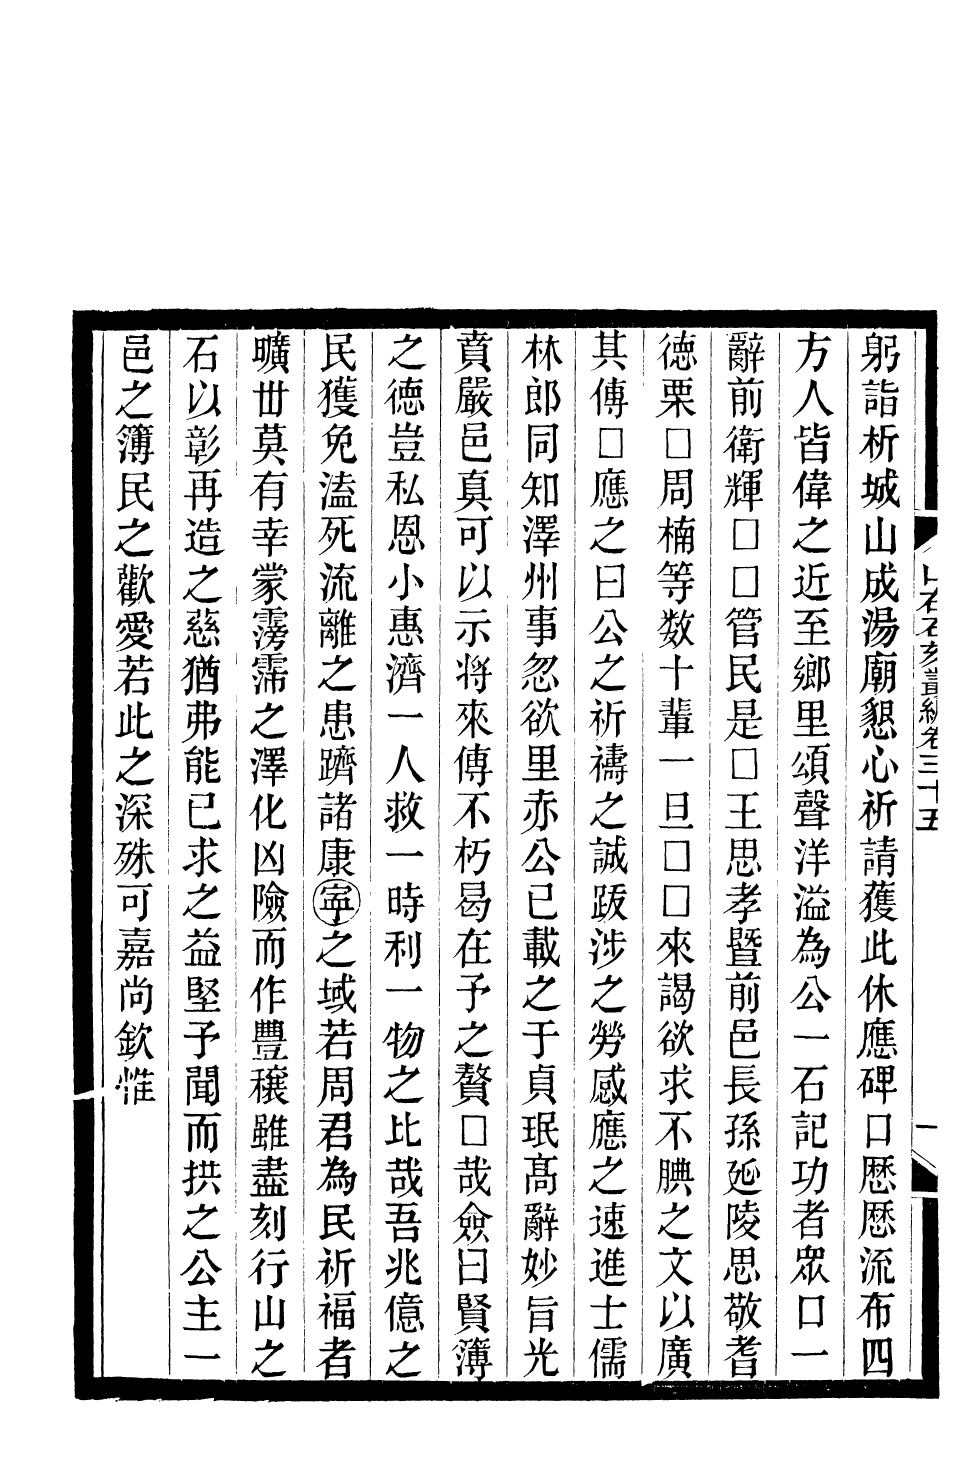 躬詣析城山成湯廟懇心祈請獲此休應碑口歷歷流布四
方人皆偉之近至鄉里頌聲洋溢為公一石記功者眾口一
辭前衛輝□□管民是□王思孝暨前邑長孫延陵思敬耆
德栗□周楠等数十輩一旦□□來謁欲求不腆之文以廣
其傳□應之曰公之祈禱之誠跋涉之勞感應之速進士儒
林郎同知澤州事忽欲里赤公已載之于貞珉高辭妙旨光
賁嚴邑真可以示将來傳不朽曷在予之贅□哉僉曰賢簿
之德豈私恩小惠濟一人救一時利一物之比哉吾兆億之
民獲免溘死流離之患躋諸康寧之域若周君為民祈福者
曠丗莫有幸蒙霶霈之澤化凶險而作豐穰雖盡刻行山之
石以彰再造之慈猶弗能已求之益堅予聞而拱之公主一
邑之簿民之歡愛若此之深殊可嘉尚欽惟
山右石刻叢編卷三十五
一